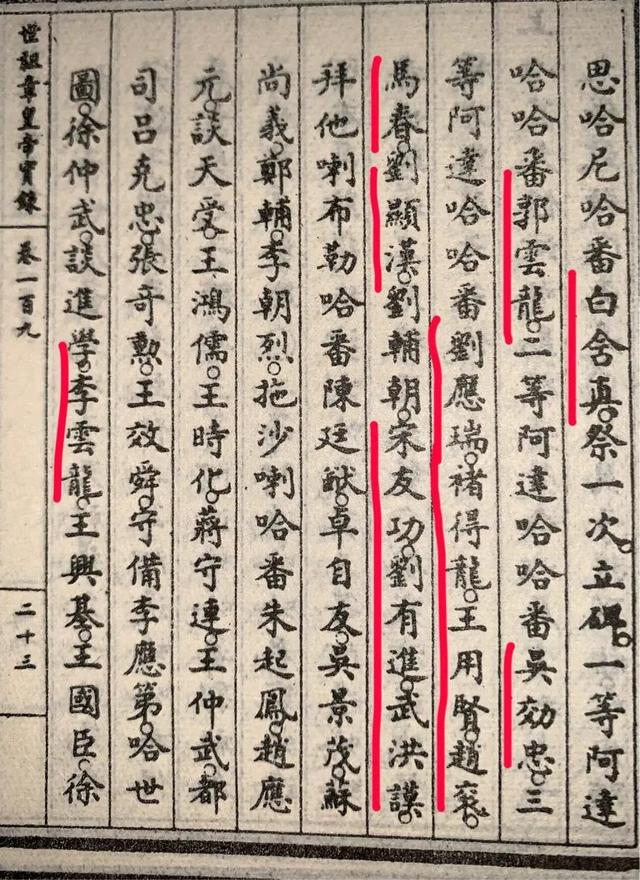 思哈尼哈番白舍真。祭一次。立碑。一等阿達
哈哈番郭雲龍。二等阿達哈哈番吳効忠。三
等阿達哈哈番劉應瑞。褚得龍。王用賢。趙袞。
馬春。劉顯漢。劉輔朝。宋友功。劉有進。武洪謨。
拜他喇布勒哈番陳廷猷。卓自友。吳景茂。蘇
尚義。鄭輔。李朝烈。拖沙喇哈番朱起鳳。趙應
元。談天受。王鴻儒。王時化。蔣守連。王仲武。都
司呂克忠。張奇勲。王效舜。守備李應第。哈世
圖。徐仲武。談進學。李雲龍。王興基。王國臣。徐
世祖章皇帝實錄
卷一百九
二十三